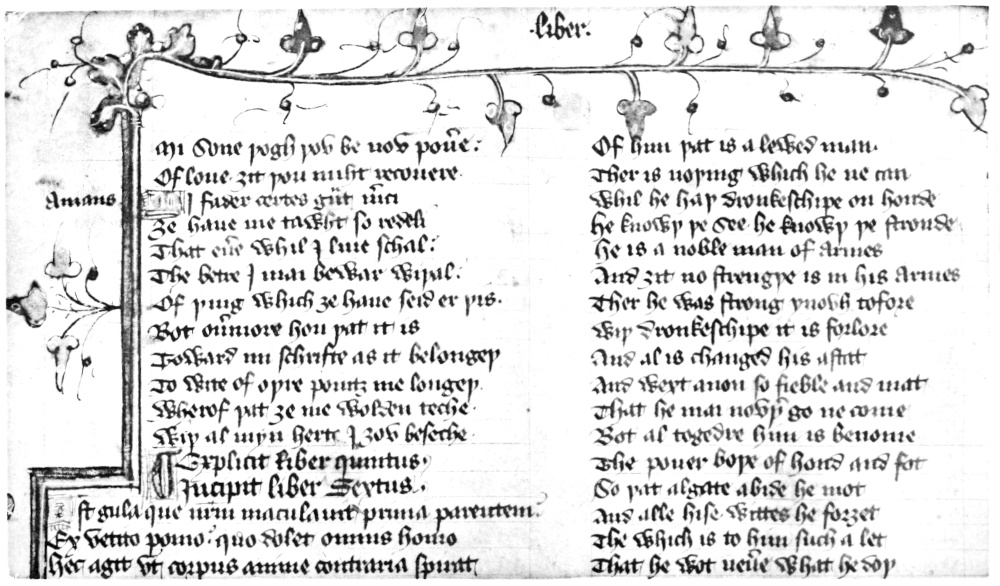 ·liber·
Mi Sone þogh þou be nou pou̅e:
Of loue ȝit þou miht recouere·
Amans
I fader certes g̅nt m̅ci
Ȝe haue me tawht so redeli
That eu̅e whil I liue schal:
The betre I mai bewar wiþal:
Of þing which ȝe haue seid er þis·
Bot ou̅ermore hou þat it is
Toward mi schrifte as it belongeþ
To wite of oþre pointz me longeþ·
Wherof þat ȝe me wolden teche·
Wiþ al myn herte I ȝou beseche·
¶ Explicit liber quintus·
Incipit liber Sextus·
Est gula que nr̅m maculauit prima parentem:
Ex vetito pomo: quo dolet omnis homo
Hec agit vt corpus anime contraria spirat
Of him þat is a lewed man·
Ther is noþing which he ne can
Whil he haþ dronkeschipe on honde
He knowþ þe See· he knowþ þe stronde·
He is a noble man of armes
And ȝit no strengþe is in his armes
Ther he was strong ynouh tofore
Wiþ dronkeschipe it is forlore
And al is changed his astat
And wext anon so fieble and mat
That he mai nouþ̅ go ne come
Bot al togedre him is benome
The pouer boþe of hond and fot
So þat algate abide he mot
And alle hise wittes he forȝet
The which is to him such a let
That he wot neu̅e what he doþ